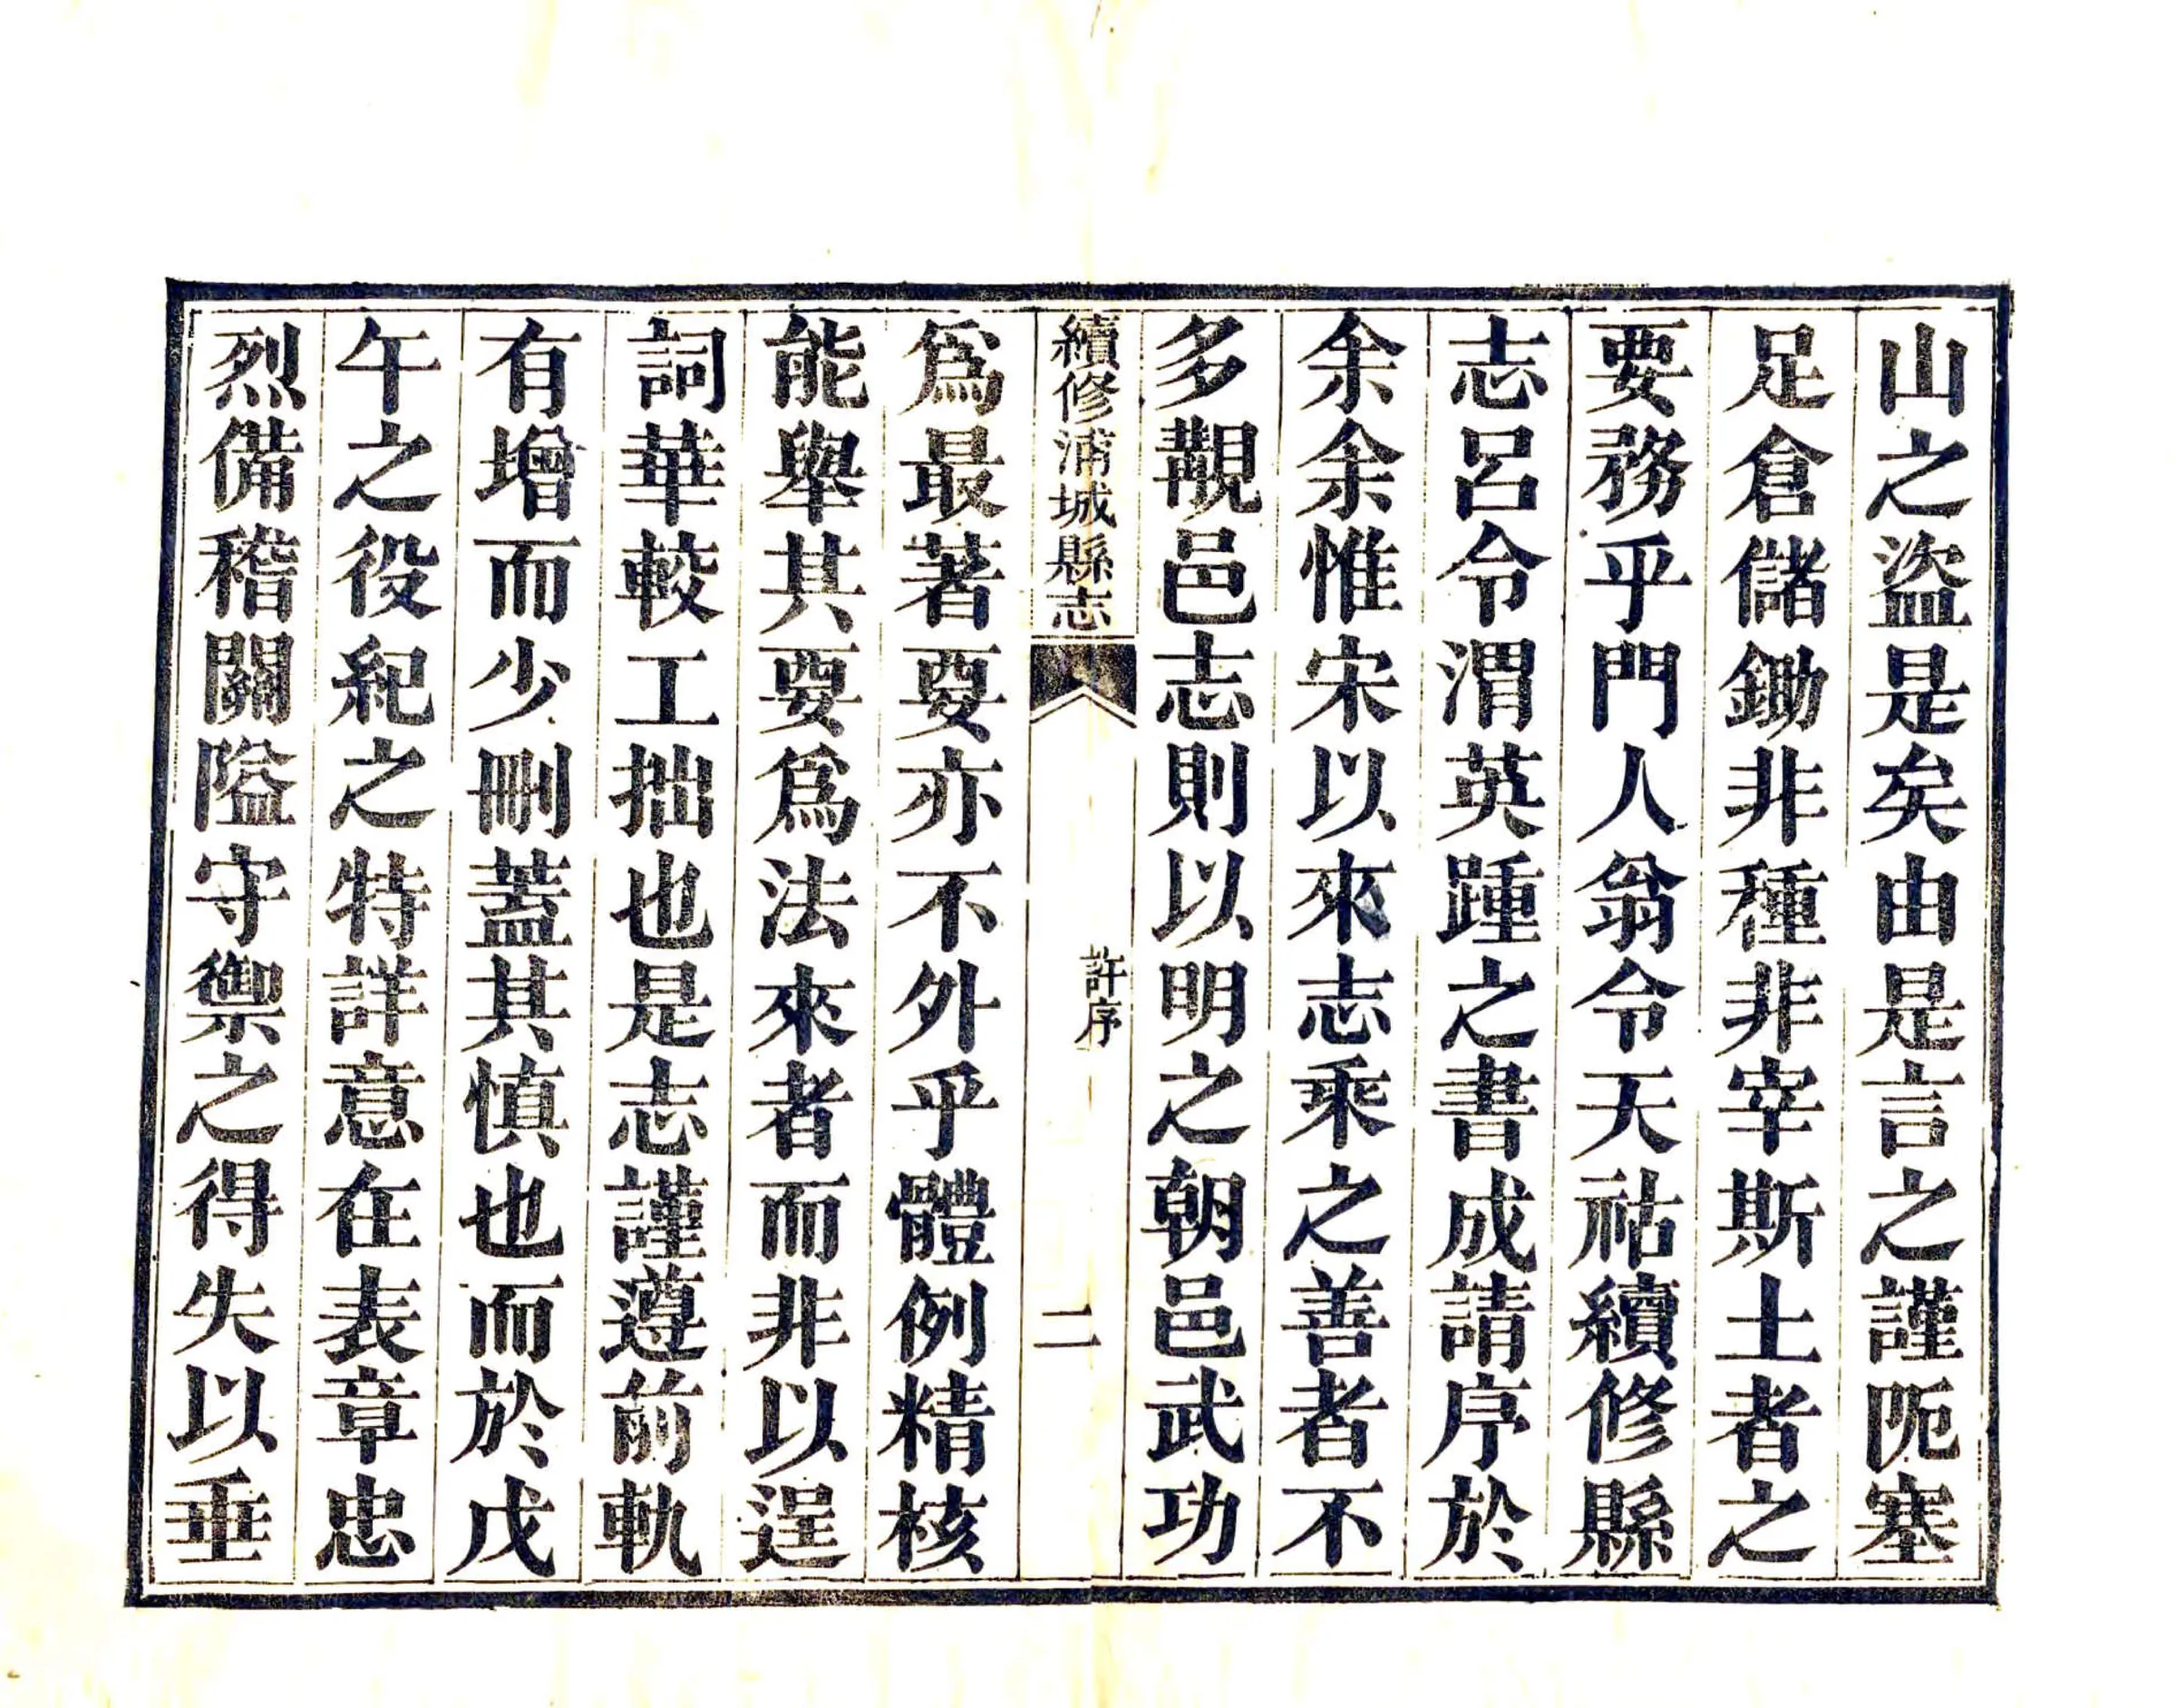 山之盜是矣由是言之謹阨塞
足倉儲鋤非種非宰斯土者之
要務乎門人翁令天祜續修縣
志呂令渭英踵之書成請序於
余余惟宋以來志乘之善者不
多覯邑志則以明之朝邑武功
續修浦城縣志
許序
二
爲最著要亦不外乎體例精核
能舉其要爲法來者而非以逞
詞華較工拙也是志謹遵前軌
有增而少刪蓋其慎也而於戊
午之役紀之特詳意在表章忠
烈備稽關隘守禦之得失以垂